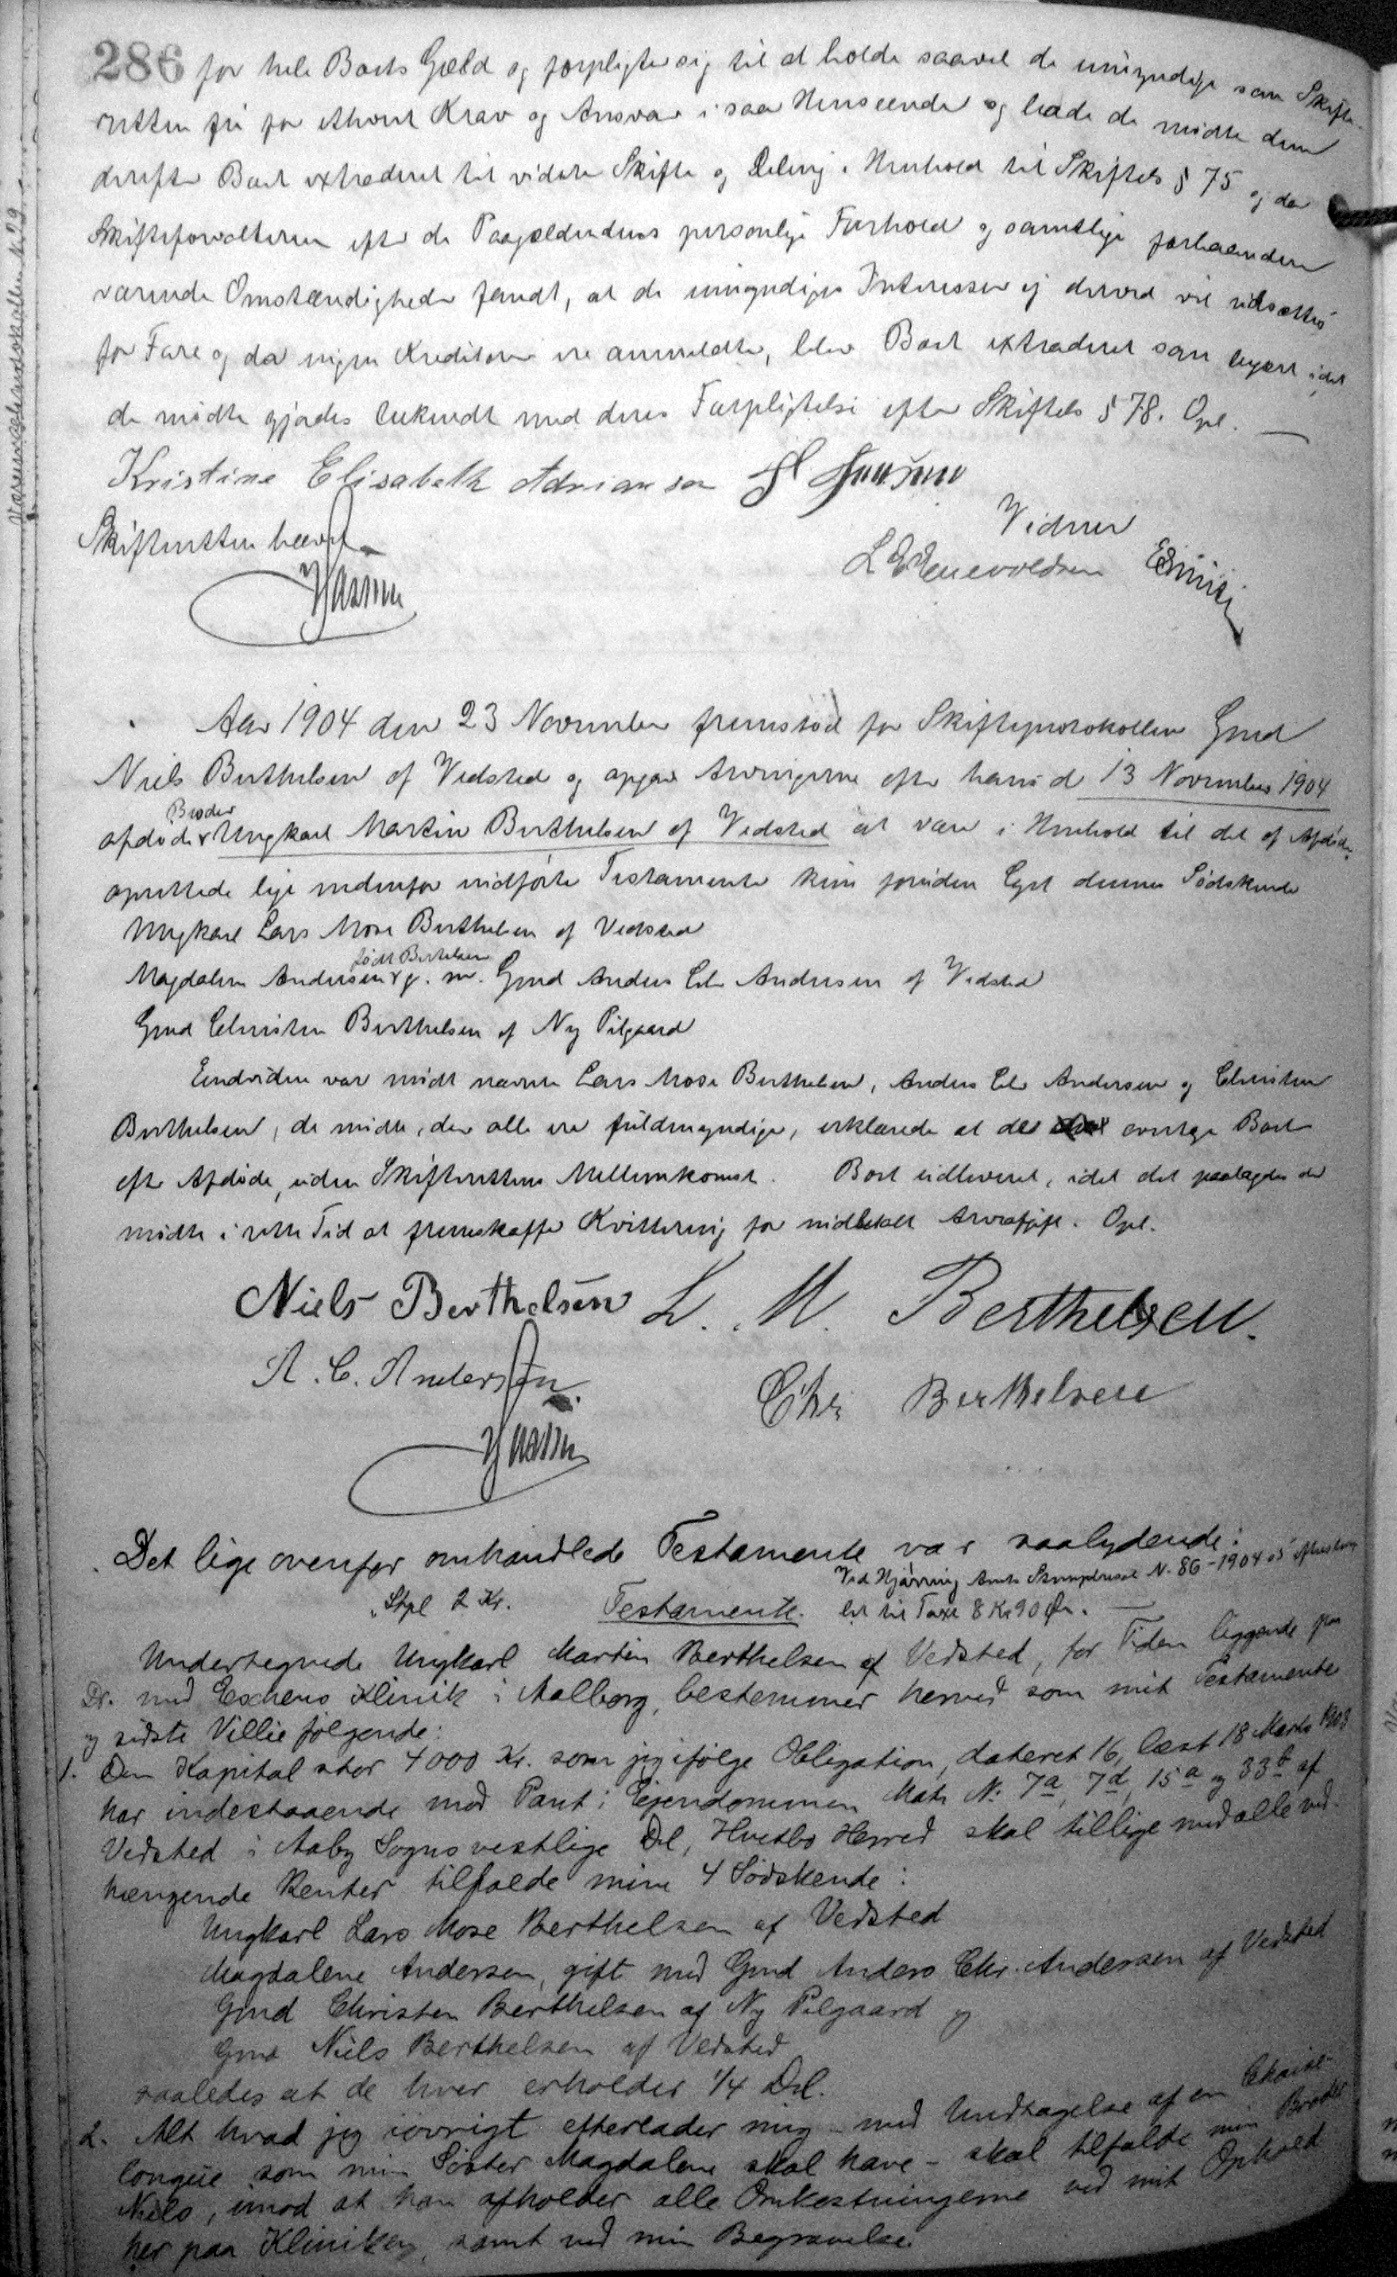 286 for hele Boets Gæld og forpligte sig til at holde saavel de umyndige som Skifte-
retten fri for ethvert Krav og Ansvar i saa Henseende og bade de mødte dem
derefter Boet extraderet til videre Skifte og Deling i Henhold til Skiftels § 75 og da
Skifteforvalteren efter de Paagældendes personlige Forhold og samtlige forhaanden
værende Omstændigheder fandt, at de umyndiges Interesser ej derved vil udsættes
for Fare og da ingen Kreditorer ere anmeldte, blev Boet extraderet som begært idet
de mødte gjordes bekendt med deres Forpligtelse efter Skiftels § 78. Opl.
Kristine Elisabeth Adriansen
Vidner
Skifteretten hævet
L E Enevoldsen
Aar 1904 den 23 November fremstod for Skifteprotokollen Gmd
Niels Berthelsen af Vedsted og opgav Arvingerne efter hans d 13 November 1904
Broder
afdøde Ungkarl Martin Berthelsen af Vedsted at være i Henhold til det af Afdøde
oprettede lige nedenfor indførte Testamente kun foruden Cpt dennes Södskende
Ungkarl Lars Mose Berthelsen af Vedsted
født Berthelsen
Magdalene Andersen g. m. Gmd Anders Chr Andersen af Vedsted
Gmd Christen Berthelsen af Ny Pilgaard
Endvidere var mødt nævnte Lars Mose Berthelsen, Anders Chr Andersen og Christen
Berthelsen, de mødte, der alle ere fuldmyndige, erklærede at de overtage Boet
efter Afdøde, uden Skifterettens Mellemkomst. Boet udleveret, idet det paalagdes de
mødte i rette Tid at fremskaffe Kvittering for indbetalt Arveafgift. Opl.
Niels Berthelsen L. M. Berthelsen.
A. C. Andersen
Chr Berthelsen
Det lige ovenfor omhandlede Testamente var saalydende:
Ved Hjørring Amts Stempelpresse N. 86-1904
Stpl 2 Kr. Testamente. til Taxt 8 Kr 90 Ør.
Undertegnede Ungkarl Martin Berthelsen af Vedsted, for Tiden liggende paa
Dr. med Eschens Klinik i Aalborg, bestemmer herved som mit Testamente
og sidste Villie følgende:
1. Den Kapital stor 4000 Kr. som jeg ifølge Obligation, dateret 16, læst 18 Marts 1903
har indestaaende mod Pant i Ejendommen Matr N: 7a, 7d, 15a og 33b af
Vedsted i Aaby Sogns vestlige Del, Hvetbo Herred skal tillige med alle ved-
hængende Renter tilfalde mine 4 Södskende:
Ungkarl Lars Mose Berthelsen af Vedsted
Magdalene Andersen, gift med Gmd Anders Chr. Andersen af Vedsted
Gmd Christen Berthelsen af Ny Pilgaard og
Gmd Niels Berthelsen af Vedsted
saaledes at de hver erholder 1/4 Del.
2. Alt hvad jeg iøvrigt efterlader mig - med Undtagelse af en Chaise-
longue som min Søster Magdalene skal have - skal tilfalde min Broder
Niels, imod at han afholder alle Omkostningerne ved mit Ophold
her paa Kliniken, samt ved min Begravelse.